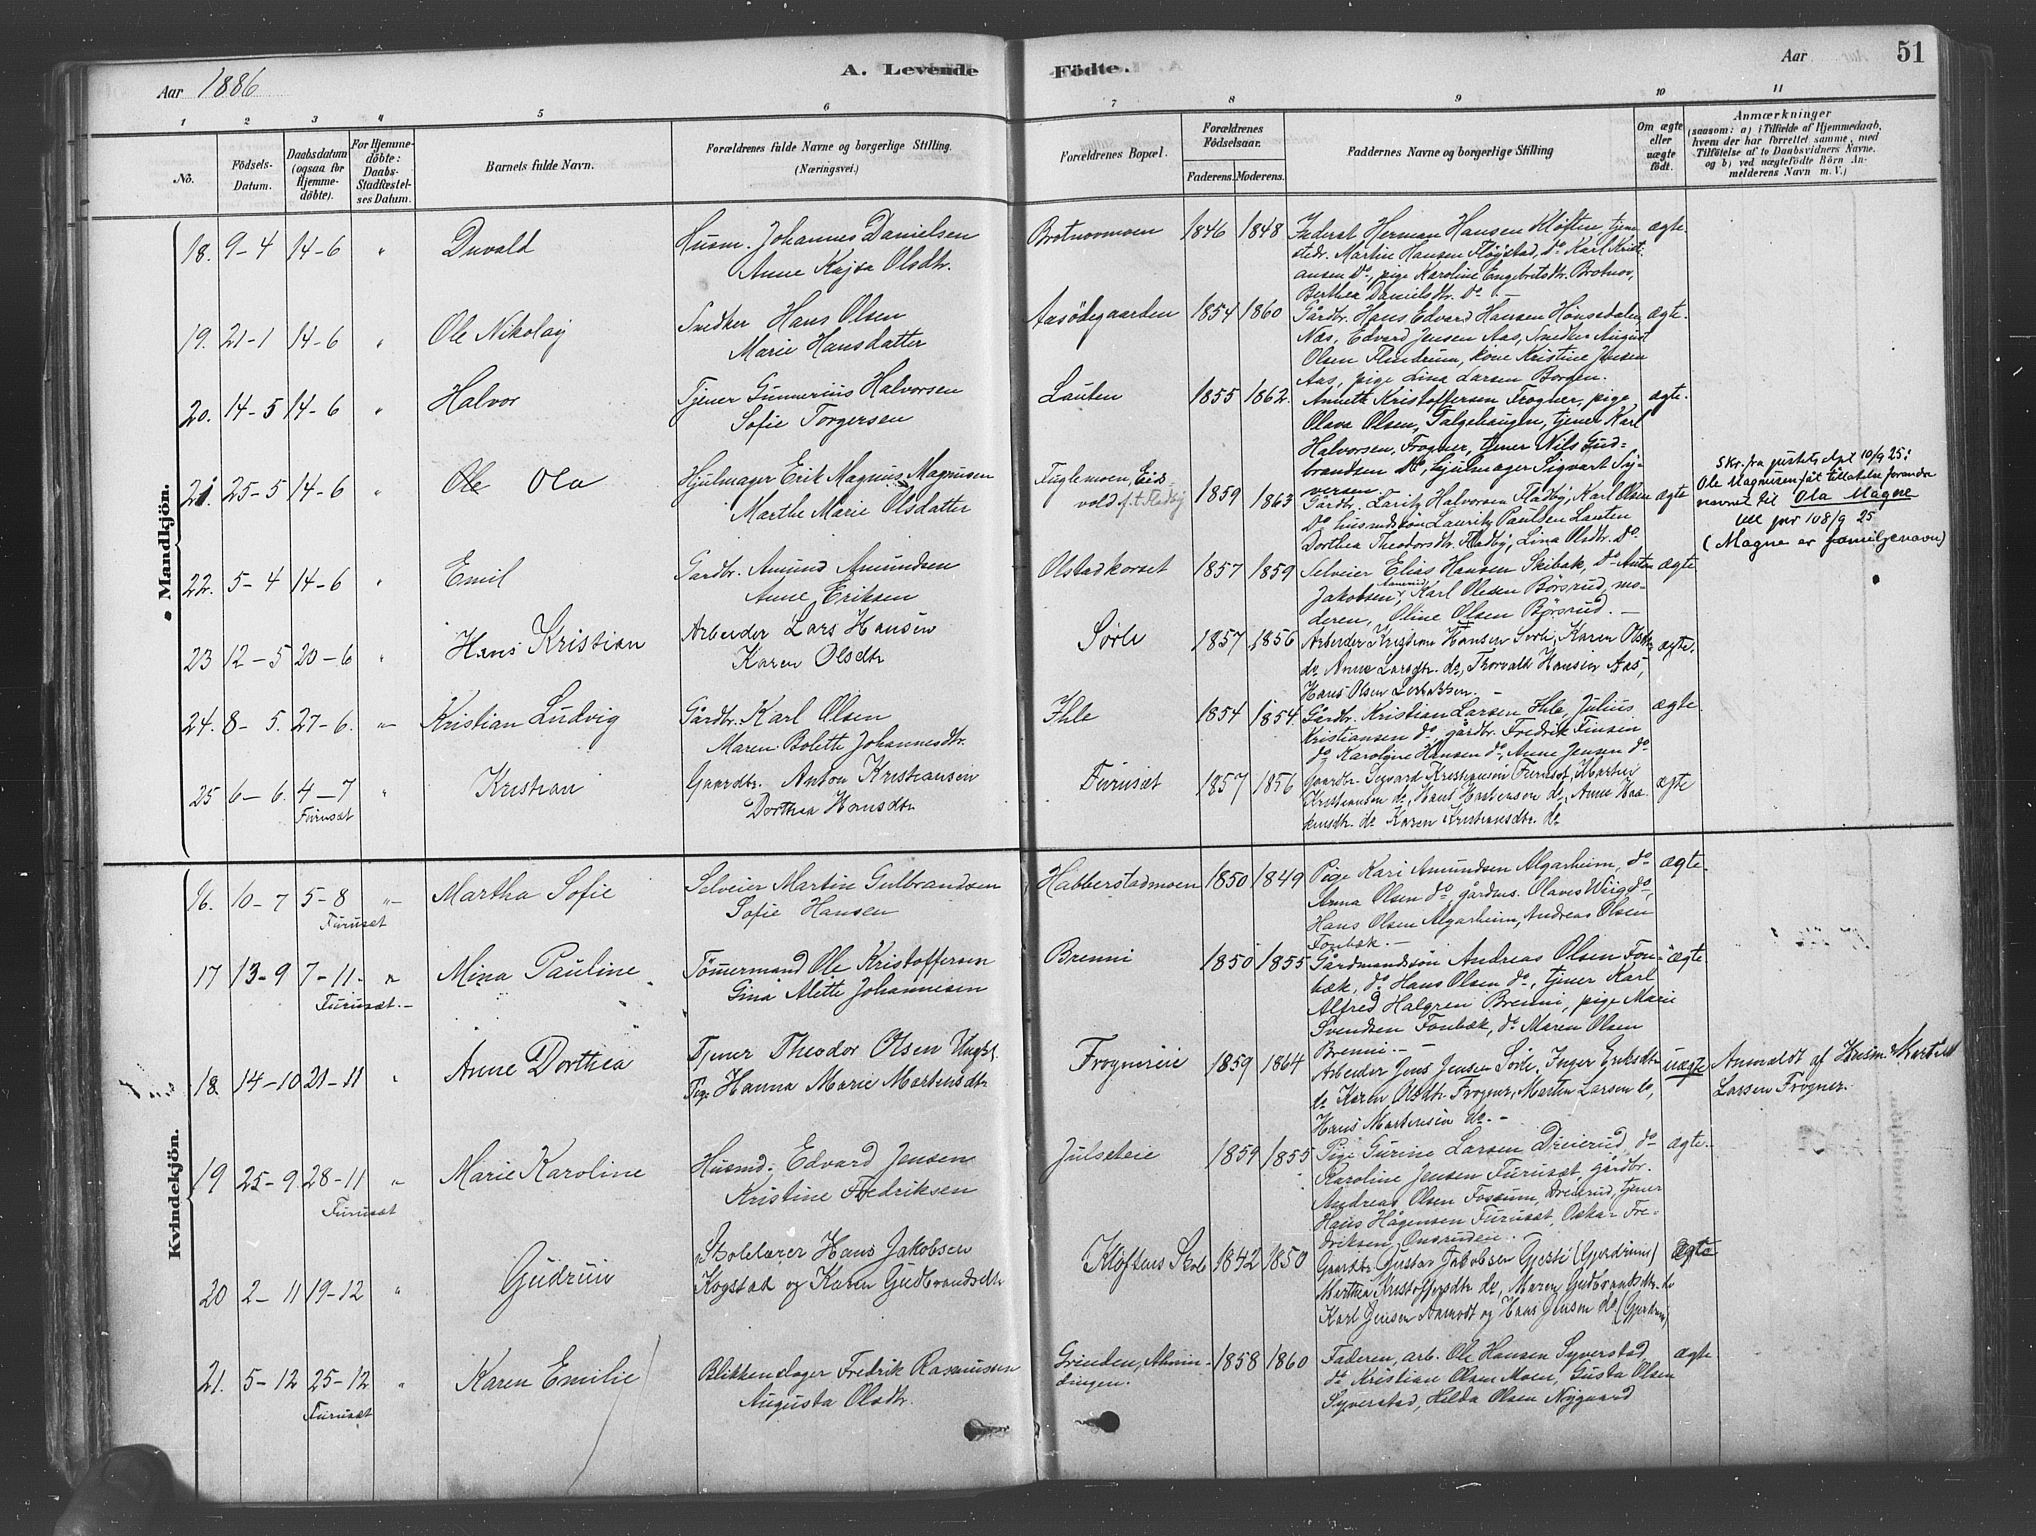 Aar 1886
A. Levende
Födte.
Aar
51
1 2 3 4 5 6 7 8 9 10 11
No.
Födsels-
Datum.
Daabsdatum
(ogsaa for
Hjemme-
döbte).
For Hjemme-
döbte:
Daabs-
Stadfæstel-
ses Datum.
Barnets fulde Navn.
Forældrenes fulde Navne og borgerlige Stilling.
(Næringsvei.)
Forældrenes Bopæl.
Forældrenes
Födselsaar.
Faderens. Moderens.
Faddernes Navne og borgerlige Stilling
Om ægte
eller
uægte
födt.
Anmærkninger
(saasom: a) i Tilfælde af Hjemmedaab,
hvem der har forrettet samme, med
Tilföielse af to Daabsvidners Navne,
og b) ved uægtefödte Börn An-
melderens Navn m. V.)
Mandkjön.
18. 9-4 14-6 " Duvald
Husm. Johannes Danielsen
Anne Kajsa Olsdtr.
Brotnovmoen 1846 1848
Inderst Herman Hansen Kløften, tjene
stedr. Martin Hansen Fløgstad, do Karl Kristi-
ansen do, pige Karoline Engebretsdtr. Brotnov,
Berthea Danielsdtr. do
ægte
19. 21-1 14-6 " Ole Nikolay
Snedker Hans Olsen
Marie Hansdatter
Aasødegaarden 1854 1860
Gårdbr. Hans Edvard Hansen Hønsedalen
Næs, Edvard Jensen Aas, Snedker August
Olsen Flindrum, kone Kristine Jensen
Aas, pige Lina Larsen Borgen.
ægte.
20. 14-5 14-6 " Halvor
Tjener Gunnerius Halvorsen
Sofie Torgersen
Lauten 1855 1862.
Anneth Kristoffersen Frogner, pige
Olava Olsen, Falgehaugen, tjener Karl
Halvorsen, Frogner, tjener Nils Gud-
brandsen do, hjulmager Sigvart Sy-
versen
ægte.
21 25-5 14-6 " Ole Ola
Hjulmager Erik Magnus Magnusen
Marthe Marie Olsdatter
Fuglemoen, Eids
vold f.t. Fladby 1859 1863
Gårdbr. Laritz Halvorsen Fladby, Karl Olsen
do husmdsøn Lauritz Paulsen Lauten
Dorthea Theodorsdtr. Fladby, Lina Olsdtr. do
ægte
Skr. fra justets dept 10/9 25:
Ole Magnusen fåt tillatelse forandre
navnet til Ola Magne
ill jnr 108/9 25
(Magne er familjenavn)
22. 5-4 14-6 " Emil
Gardbr. Amund Amundsen
Anne Eriksen
Olstadkorset 1857 1859
Selveier Elias Hansen Skibak, do Anton
Jakobsen, Karl Olesen Børsrud, mo-
deren, Oline Olsen Børsrud.
ægte
23 12-5 20-6 " Hans Kristian
Arbeider Lars Hansen
Karen Olsdtr
Sørli 1857 1856
Arbeider Kristian Hansen Sørli, Karen Olsdtr
do Anne Larsdtr. do, Thorvald Hansen Aas,
Hans Olsen
ægte.
24. 8-5. 27-6. " Kristian Ludvig
Gårdbr. Karl Olsen
Maren Bolette Johannesdtr.
Ihle 1854 1854
Gårdbr. Kristian Larsen Ihle, Julius
Kristiansen do, gårdbr. Fredrik Finsen
do, Karoline Hansen do, Anne Jensen do
ægte.
25 6-6. 4-7 " Kristian
Furuset
Gaardbr. Anton Kristiansen
Dorthea Hansdtr
Furuset 1857 1856
Gaardbr. Sigvard Kristiansen Furuset, Martin
Kristiansen do, Hans Mortensen do, Anne Haa-
kensdtr. do Karen Kristiansdtr. do
ægte
Kvindekjön.
16. 10-7 5-8 " Martha Sofie
Furuset
Selveier Martin Gulbrandsen
Sofie Hansen
Habberstadmoen 1850 1849
Pige Kari Amundsen Algarheim, do
Anna Olsen do, gårdms. Olaves Wiig do,
Hans Olsen Algarheim, Andreas Olsen
Fonbæk.
ægte.
17 13-9 7-11. " Mina Pauline
Furuset.
Tømmermand Ole Kristoffersen
Gina Alette Johannesen
Brenni 1850 1855
Gårdmandsøn Andreas Olsen Fon-
bæk, do Hans Olsen do, tjener Karl
Alfred Halgren Brenni, pige Marie
Svendsen Fonbæk, do Maren Olsen
Brenni.
ægte.
18. 14-10 21-11 " Anne Dorthea
Tjener Theodor Olsen Ungk.
Pige Hanna Marie Martensdtr
Frognereie 1859 1864
Arbeider Jens Jensen Sørli, Inger Eriksdtr
do Karen Olsdtr Frogner, Martin Larsen do,
Hans Martensen do.
uægte
Anmeldt af Husm. Martin
Larsen Frogner.
19 25-9. 28-11 " Marie Karoline
Furuset
Husmd. Edvard Jensen
Kristine Fredriksen
Julseteie 1859 1855
Pige Gurine Larsen Dreierud, do
Karoline Jensen Furuset, Gårdbr.
Andreas Olsen Fossum, Dreierud, tjener
Hans Hågensen Furuset, Oskar Fre-
driksen,
ægte.
20 2-11 19-12 " Gudrun
Skolelærer Hans Jakobsen
Kogstad og Karen Gudbrandsdtr
Kløftens Skole 1842 1850
Gaardbr Gustav Jakobsen Gjesti (Gjerdrum)
Marthea Kristoffersdtr do, Maren Gudbrandsdtr do
Karl Jensen Aamodt og Hans Jensen do (Gjerdrum)
Ægte
21. 5-12 25-12 " Karen Emilie
Furuset
Blikkenslager Fredrik Rasmussen
Augusta Olsdtr.
Grinden, Almin-
dingen. 1858 1860
Faderen, arb. Ole Hansen Syverstad,
do Kristian Olsen Moen, Gusta Olsen
Syverstad, Hilda Olsen Nygaard
ægte